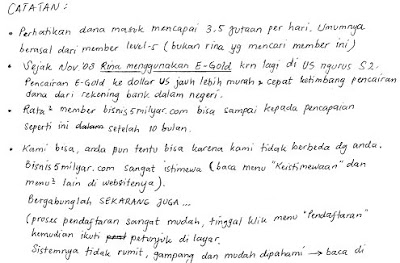 CATATAN:
• Perhatikan dana masuk mencapai 3,5 jutaan per hari. Umumnya
berasal dari member level-5 (bukan rina yg mencari member ini)
• Sejak Nov.'03 Rina menggunakan E-Gold krn lagi di US ngurus S2.
Pencairan E-Gold ke dollar US jauh lebih murah & cepat ketimbang pencairan
dana dari rekening bank dalam negeri.
• Rata² member bisnis5milyar.com bisa sampai kepada pencapaian
seperti ini dalam setelah 10 bulan.
• Kami bisa, anda pun tentu bisa karena kami tidak berbeda dg anda.
Bisnis5milyar.com sangat istimewa (baca menu "Keistimewaan" dan
menu² lain di websitenya).
Bergabunglah SEKARANG JUGA...
(proses pendaftaran sangat mudah, tinggal klik menu "Pendaftaran"
kemudian ikuti petunjuk di layar.
Sistemnya tidak rumit, gampang dan mudah dipahami → baca di